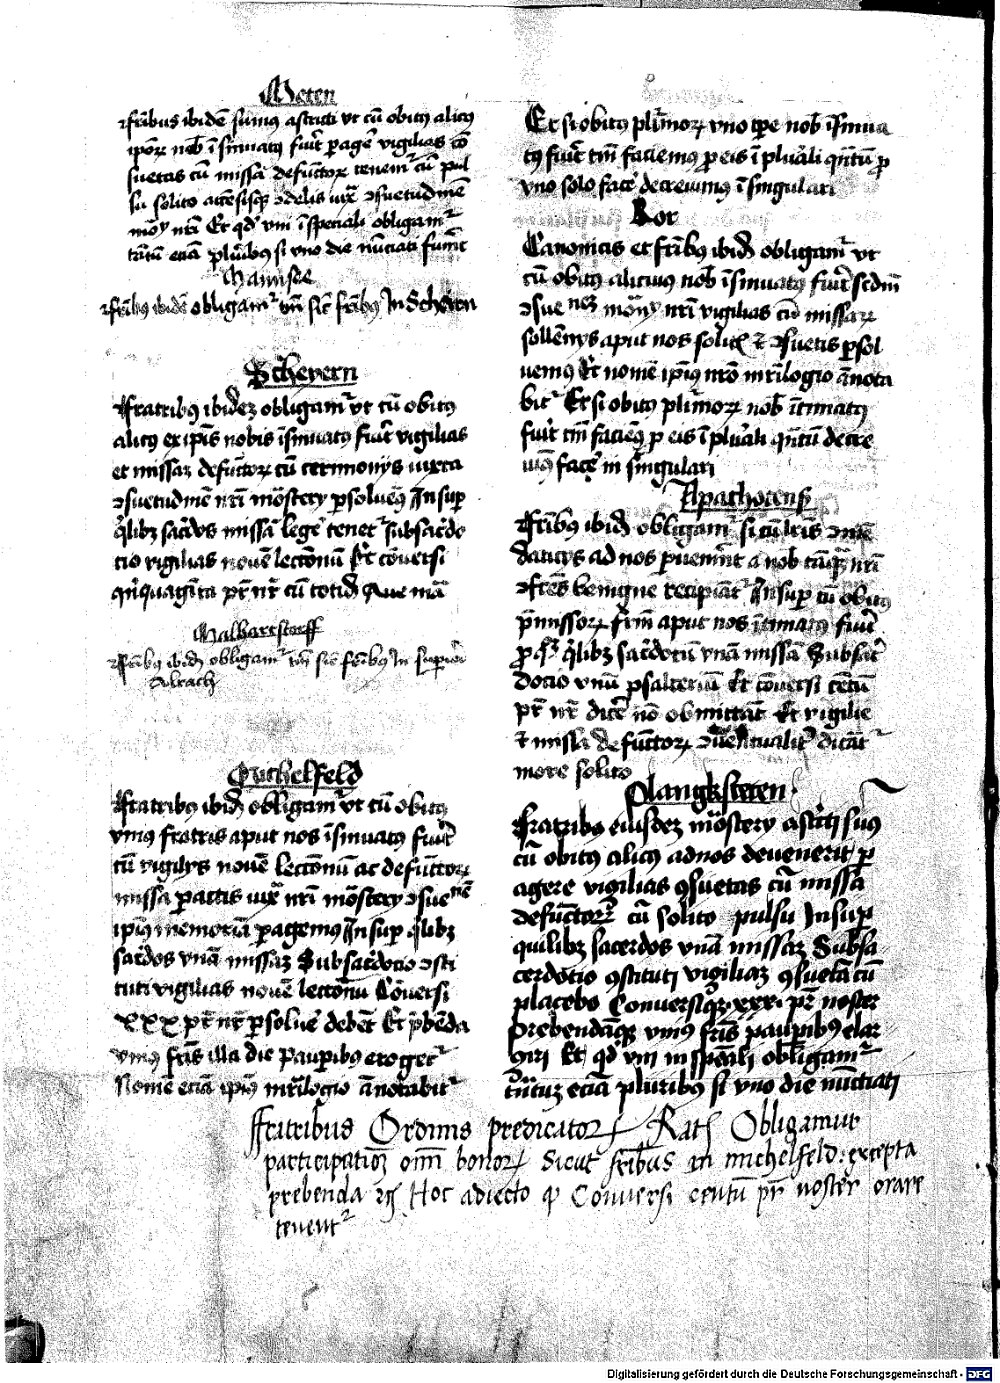 Meten
fribus ibidē sumus astricti vt cū obitus alicus
ipoꝝ nob īsinuatꝰ fuit̄ pagē vigilias cō
suetas cū missa defūctoꝝ tenemʳ cū pul
su solito
mōꝝ nrī Et qd̓ vni ī speciali obligamʳ
tm̄tū eciā plurībus si vno die nūciati fuint̄
fribꝰ ibidē obligamʳ sic fribꝰ In Scheyern
Scheyern
Fratribꝰ ibidez obligamʳ vt cū obitꝰ
alicꝰ ex ipīs nobis īsinuatꝰ fuit̄ vigilias
et missaz defūctoꝝ cū cerimonijs iuxta
ↄsuetudinē nrī mōstery psoluemꝰ Insup
q̄libz sac̄dos missā legē tenetʳ Subsac̄do
cio vigilias nouē lectōnū Et cōuersi
qn̄quagīta pr̄ nr̄ cū totid̄ Aue mā
Malhartstorff
fribꝰ ibidē obligamʳ sic fribꝰ In supiori
Alrach
Michelfeld
Fratribꝰ ibid̄ obligamʳ vt cū obitꝰ
vniꝰ fratris aput nos īsinuatꝰ fuit̄
cū vigilijs nouē lectōnū ac defūctoꝝ
missa pactis iux̄ nrī mōstery ↄsuenē
ipiꝰ memoriā pagemus Insup q̄libz
sac̄dos vnā missaz Subsac̄docio ↄsti
tuti vigilias nouē lectōnū Cōuersi
xxx pr̄ nr̄ psoluē debēt Et pbēda
vniꝰ fris illa die paupibꝰ erogetʳ
Nomē eciā ipiꝰ mr̄ilogio ānotabitʳ
Et si obitꝰ pl̄imoꝝ vno tpe nob īsinua
tꝰ fuit̄ tm̄ faciemus p eis ī plurali qn̄tū p
vno solo facē decreuimꝰ ī singulari
Ror
Canonicis et fribꝰ ibid̄ obligamʳ vt
cū obitꝰ alicuius nob īsinuatꝰ fuit̄ scdm̄
ↄsuenez mōꝝ nrī vigilias cū missaꝝ
sollēnijs aput nos solitꝭ ⁊ ↄsuetis psol
uemus Et nomē ipiꝰ nrō mr̄ilogio ānota
bitʳ Et si obitꝰ pl̄imoꝝ nob ītimatꝰ
fuit̄ tm̄ faciemꝰ p eis ī plurali qn̄tū decre
uimꝰ facē in singulari
fribꝰ ibid̄ obligamʳ si cū lrīs ↄmē
datictjs ad nos puenint̄ a nob tāqꝫ nrī
ↄfrēs benigne recipiātʳ Insup cū obitꝰ
p̄missoꝝ frm̄ aput nos ītimatꝰ fuit̄
p q̄libz sac̄dotū vnā missā Subsac̄
docio vnū psalteriū Et cōuersi cētū
pr̄ nr̄ dicē nō obmittāt Et vigilie
⁊ missa defūctoꝝ ↄuentualitʳ dicātʳ
more solito
Plangkstetten
Fratribꝰ eiusdez mōstery astricti sumꝰ
cū obitꝰ alicꝰ ad nos deuenerit p
agere vigilias ꝯsuetas cū missa
defūctoꝝ cū solito pulsu Insup
quilibz sacerdos vnā missaz Subsa
cerdotio ꝯstituti vigiliaz ꝯsuetā cū
placebo Conuersiqꝫ xxxi pr̄ noster
prebendāqꝫ vniꝰ fris paupibꝰ elar
giri Et qd̓ vni in spēali obligamʳ
tm̄tuz eciā pluribꝰ si vno die nūctiati
Fratribus Ordinis predicatoꝝ Ratꝭ Obligamur
participatioz oīm bonoꝝ sicut fribus in michelfeld excepta
prebenda ⁊c Hoc adiecto ꝙ Conuersi centū pr̄ noster orare
tenentʳ
Digitalisierung gefördert durch die Deutsche Forschungsgemeinschaft - DFG